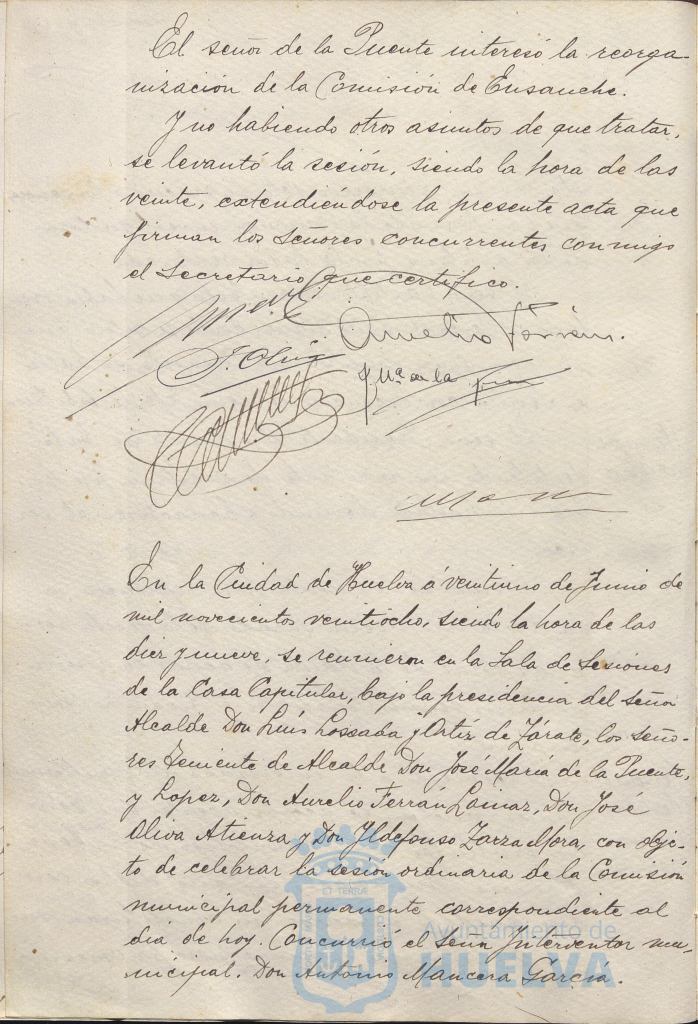 El señor de la Puente interesó la reorga-
nización de la Comisión de Ensanche.
Y no habiendo otros asuntos de que tratar,
se levantó la sesión, siendo la hora de las
veinte, extendiéndose la presente acta que
firman los señores concurrentes conmigo
el Secretario, que certifico.
Aurelio Terrán.
J. Oliva
J. Mª de la
En la Ciudad de Huelva á veintiuno de Junio de
mil novecientos veintiocho, siendo la hora de las
diez y nueve, se reunieron en la Sala de Sesiones
de la Casa Capitular, bajo la presidencia del señor
Alcalde Don Luís Lossada y Ortíz de Zárate, los seño-
res Teniente de Alcalde Don José María de la Puente,
y Lopez, Don Aurelio Terrán Lainaz, Don José
Oliva Atienza y Don Yldefonso Zarza Mora, con obje-
to de celebrar la sesión ordinaria de la Comisión
municipal permanente correspondiente al
dia de hoy. Concurrió el señor Interventor mu-
nicipal. Don Antonio Mancera García.
ET TERRAE
Ayuntamiento de
HUELVA